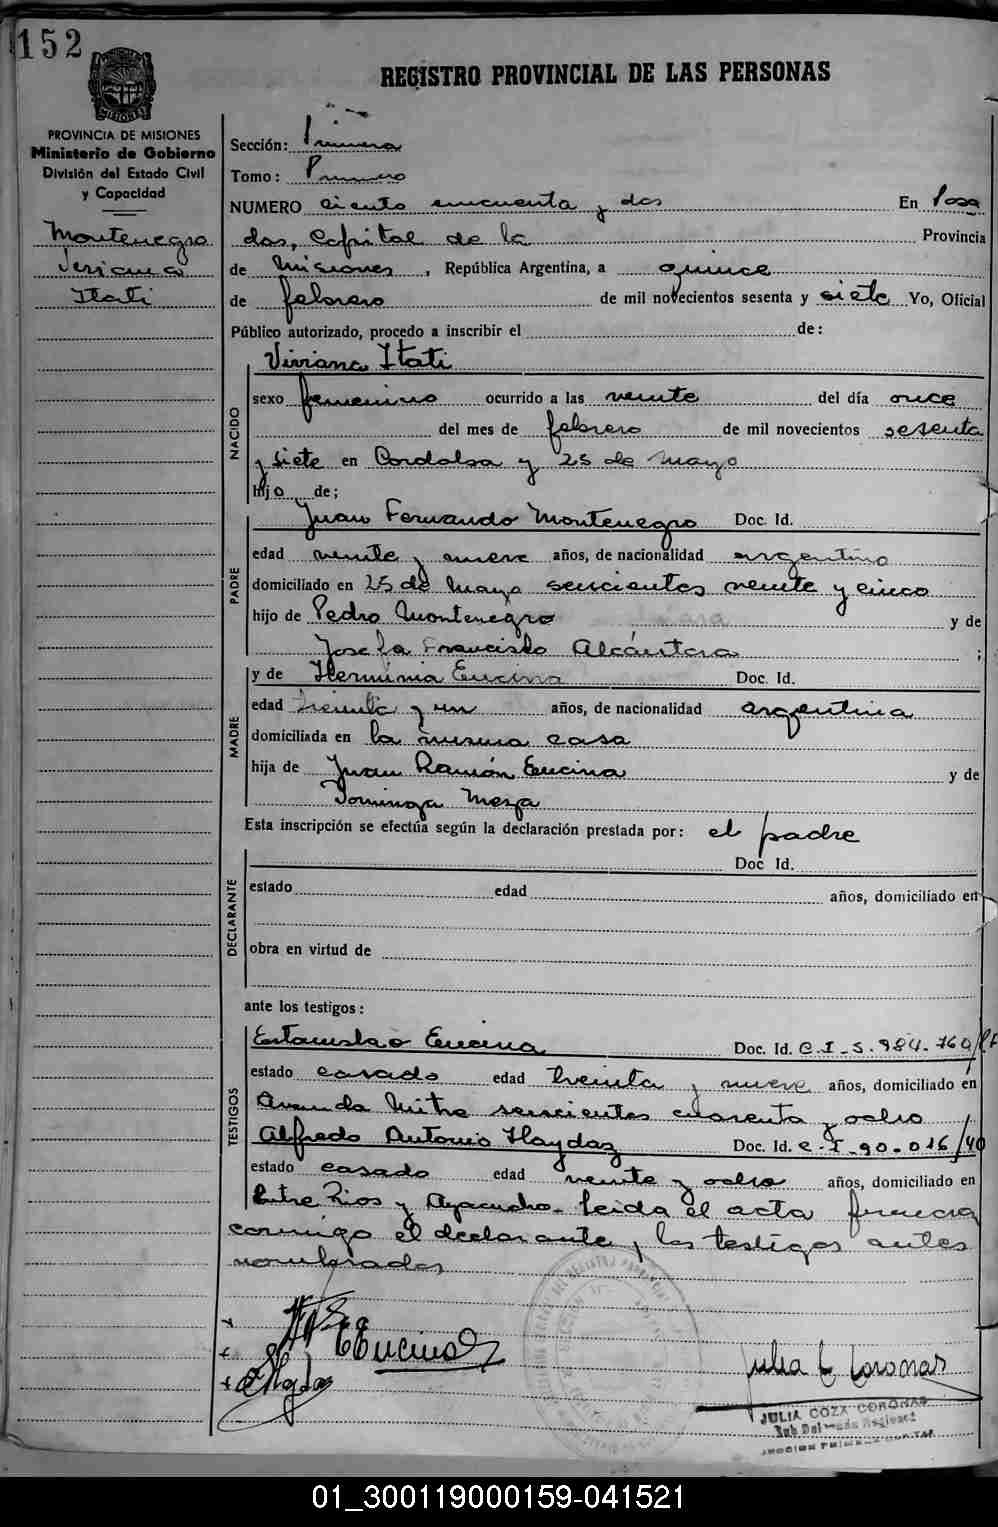 152
REGISTRO PROVINCIAL DE LAS PERSONAS
MISIONES
PROVINCIA DE MISIONES
Ministerio de Gobierno
División del Estado Civil
y Capacidad
Montenegro
Viviana
Itati
Sección: Primera
Tomo: Primero
NUMERO ciento cincuenta y dos En Posa
das, Capital de la Provincia
de Misiones, República Argentina, a quince
de febrero de mil novecientos sesenta y siete Yo, Oficial
Público autorizado, procedo a inscribir el de:
NACIDO
Viviana Itati
sexo femenino ocurrido a las veinte del día once
del mes de febrero de mil novecientos sesenta
y siete en Cordoba y 25 de Mayo
hijo de;
PADRE
Juan Fernando Montenegro Doc. Id.
edad veinte y nueve años, de nacionalidad argentino
domiciliado en 25 de Mayo seiscientos veinte y cinco
hijo de Pedro Montenegro y de
Josefa Francisko Alcántara ;
MADRE
y de Herminia Encina Doc. Id.
edad treinta y un años, de nacionalidad argentina
domiciliada en la misma casa
hija de Juan Ramón Encina y de
Dominga Meza
Esta inscripción se efectúa según la declaración prestada por: el padre
DECLARANTE
Doc Id.
estado edad años, domiciliado en
obra en virtud de
ante los testigos:
TESTIGOS
Estanislao Encina Doc. Id. C.I.S. 984.760/
estado casado edad treinta y nueve años, domiciliado en
Avenida Mitre seiscientos cuarenta y ocho
Alfredo Antonio Haydaz Doc. Id. C.I. 90.016/40
estado casado edad veinte y ocho años, domiciliado en
Entre Rios y Ayacucho. Leida el acta firman
conmigo el declarante, los testigos antes
nombrados
EEncina
Julia C Coronas
JULIA COZA CORONAS
01_300119000159-041521